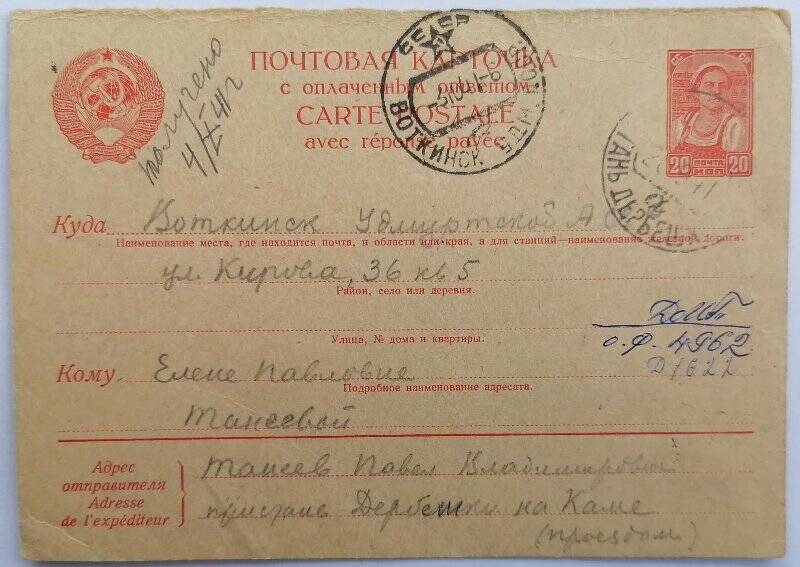 ПОЧТОВАЯ КАРТОЧКА
с оплаченным ответом
CARTE POSTALE
avec réponse payée
получено
4/X 41г
СССР
ВОТКИНСК
20 ПОЧТА КОП 20
Куда Воткинск Удмуртской АС
Наименование места, где находится почта, и области или края, а для станций—наименование железной дороги.
ул. Кирова, 36 кв 5
Район, село или деревня.
Улица, № дома и квартиры.
о.ф. 4962
Д1622
Кому Елене Павловне
Подробное наименование адресата.
Танеевой
Адрес отправителя
Adresse de l'expéditeur
Танеев Павел Владимирович
пристань Дербешки на Каме
(проездом)